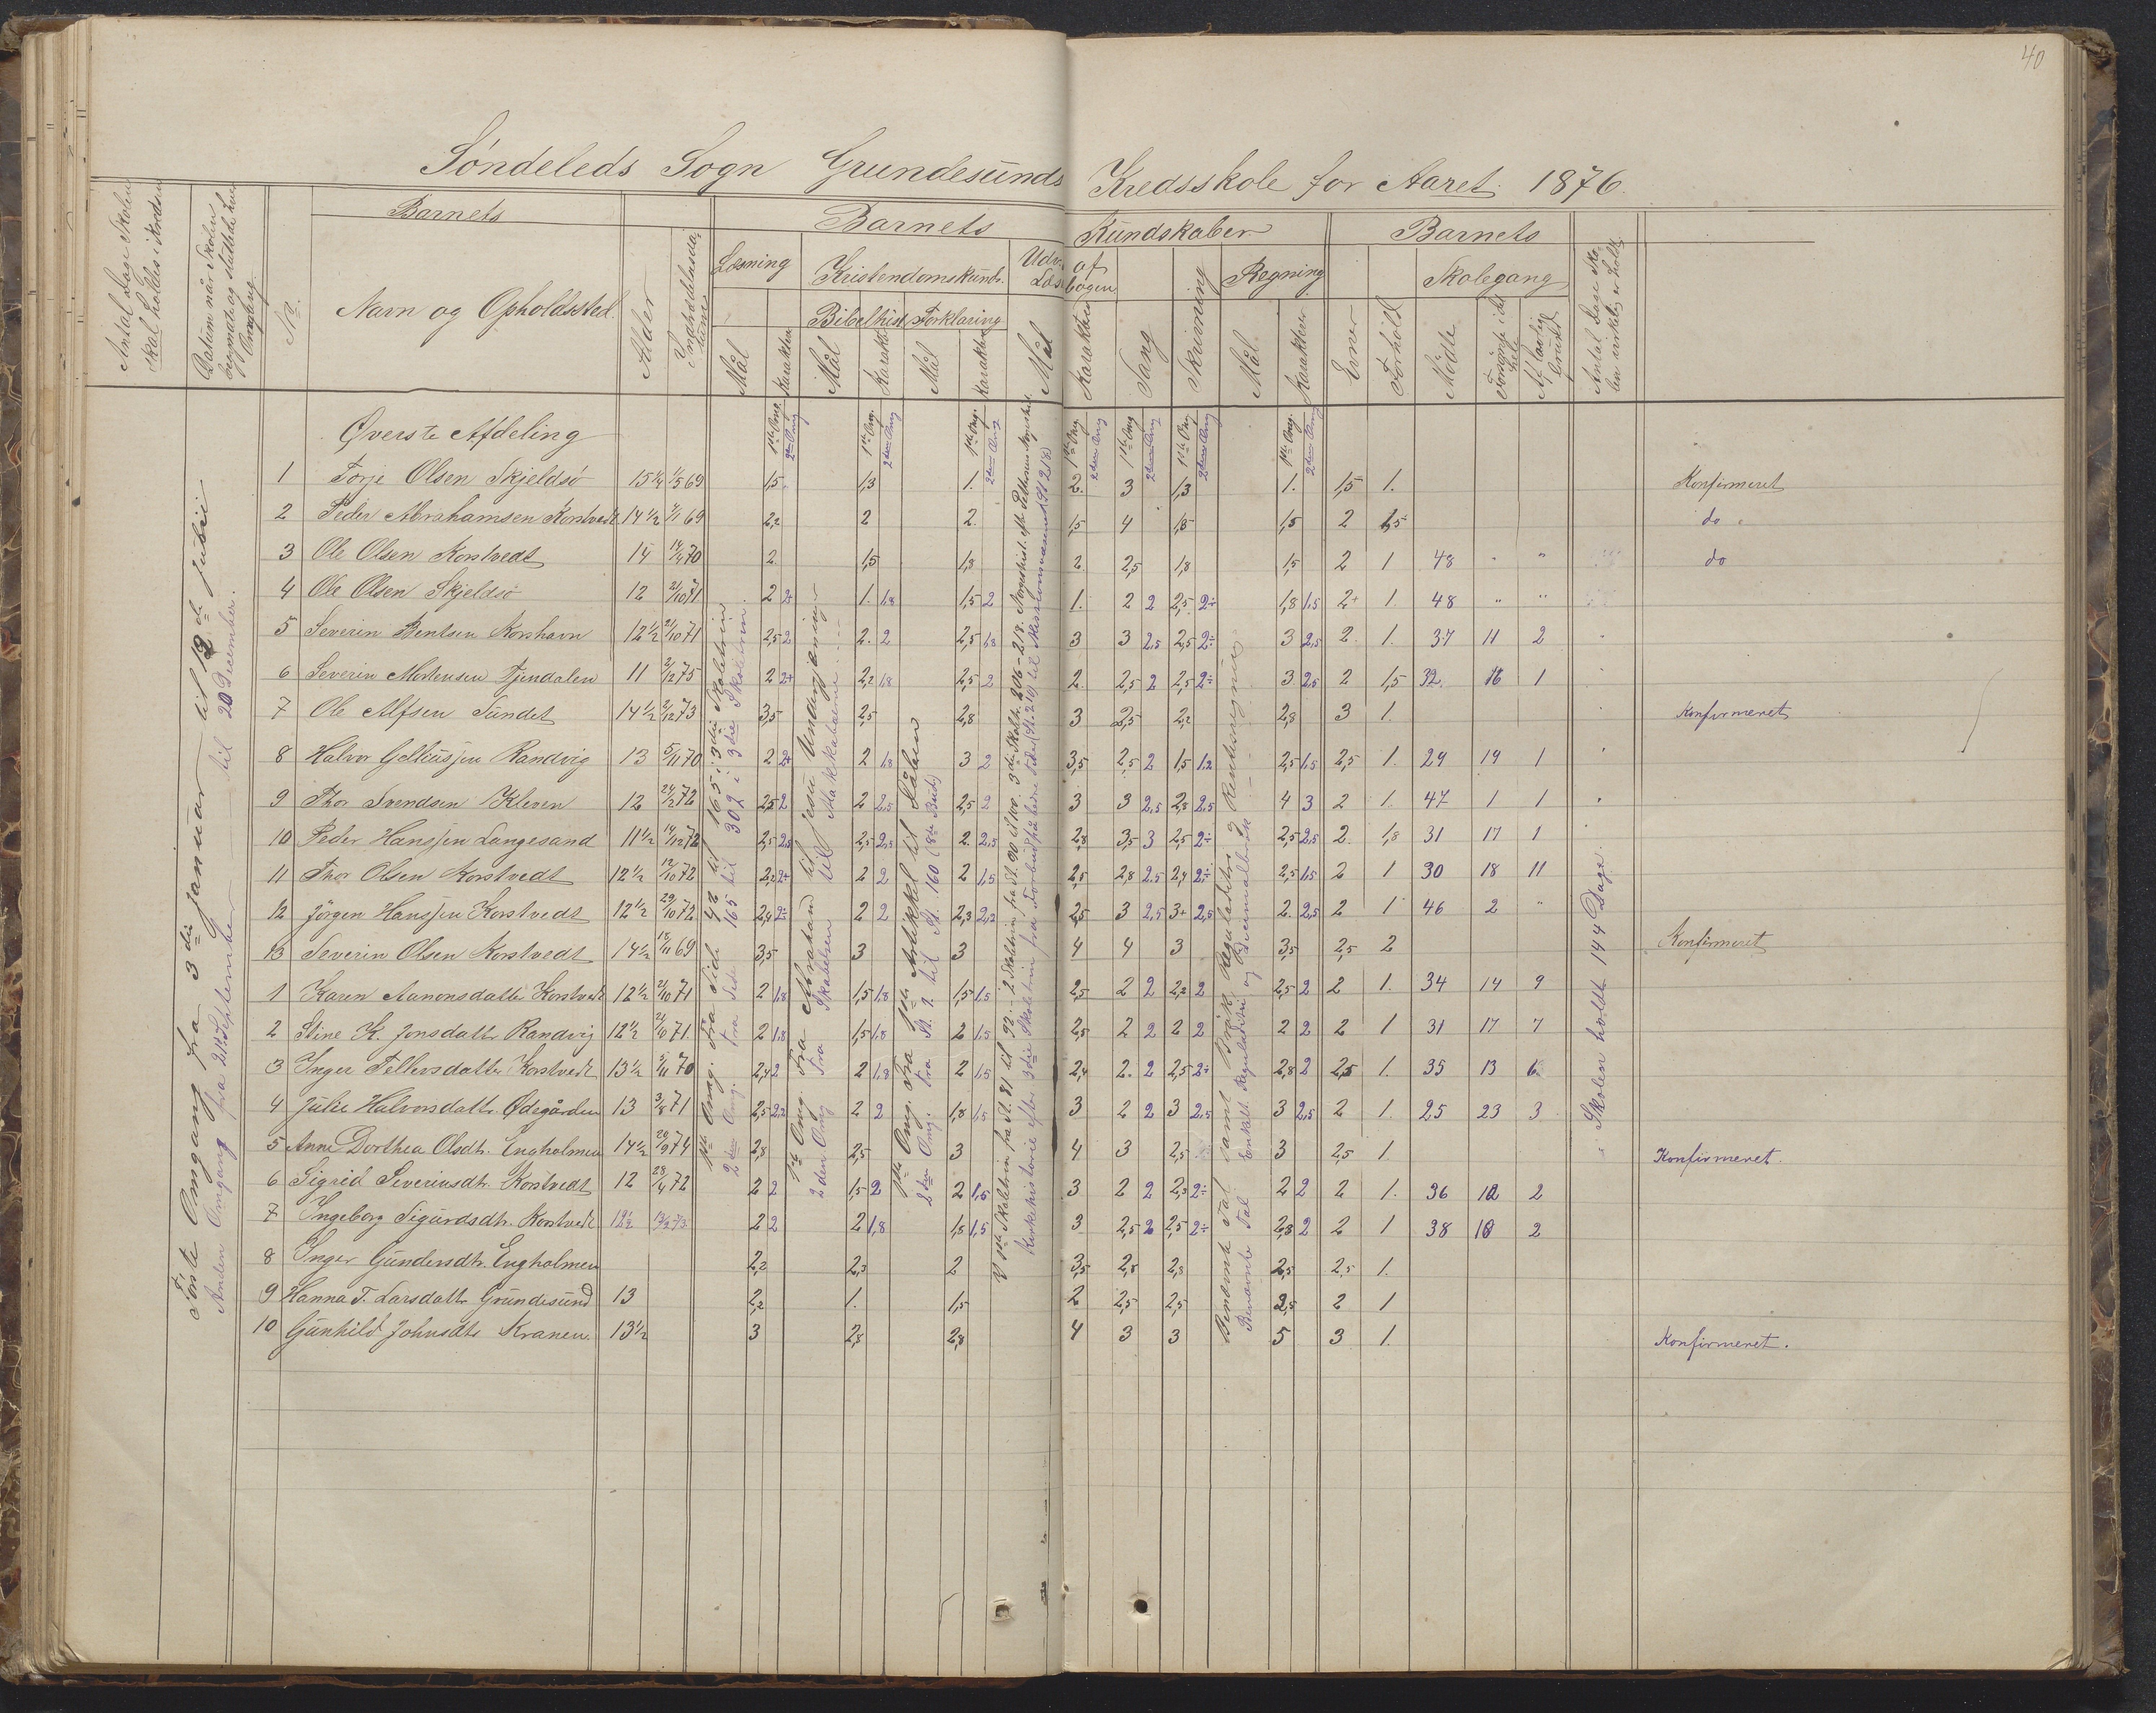 40
Söndeleds Sogn Grundesunds Kredsskole for Aaret 1876.
Antal Dage Skolen skal holdes i Kredsen
Datum når Skolen begyndte og sluttede hver Omgang
No.
Barnets
Navn og Opholdssted
Alder
Indtrædelses
Barnets Kundskaber
Læsning
Kristendomskunds.
Bibelhist.
Forklaring
Mål
Karakter
Udv. af Læsebogen
Sang
Skrivning
Regning
Evner
Forhold
Barnets
Skolegang
Mødte
Forsømte i det hele
Af lovlig Grund
Antal Dage Skolen virkelig er holdt
Første Omgang fra 3die januar til 12de julii
Anden Omgang fra 21 September til 20 December.
Øverste Afdeling
1ste Omg. 2den Omg
1 Torje Olsen Skjeldsö 15¼ 1/5 69 1,5 1,3 1. 2. 3 1,3 1. 1,5 1. Konfirmeret
2 Peder Abrahamsen Korstvedt 14½ 69 2,2 2 2. 1,5 4 1,8 1,5 2 1,5 do
3 Ole Olsen Korstvedt 14 14/4 70 2 1,5 1,8 2 2,5 1,8 1,5 2 1 48 " " do
4 Ole Olsen Skjeldsö 12 2/10 71 2 2+ 1. 1,8 1,5 2 1. 2 2 2,5 2÷ 1,8 1,5 2+ 1 48 " "
5 Severin Bentsen Korshavn 12½ 21/10 71 2,5 2 2. 2 2,5 1,8 3 3 2,5 2,5 2÷ 3 2,5 2. 1. 37 11 2
6 Severin Mortensen Tjendalen 11 2/12 75 2 2+ 2,2 1,8 2,5 2 2. 2,5 2 2,5 2÷ 3 2,5 2 1,5 32. 16 1
7 Ole Alfsen Sundet 14½ 2/12 73 3,5 2,5 2,8 3 2,5 2,2 2,8 3 1. Konfirmeret
8 Halvor Gelliusjen Randvig 13 5/11 70 2 2+ 2 1,8 3 2 3,5 2,5 2 1,5 1,2 2,5 1,5 2,5 1. 29 19 1
9 Thor Svendsen Kleven 12 72 2,5 2 2 2,5 2,5 2 3 3 2,5 2,8 2,5 4 3 2 1. 47 1 1
10 Peder Hansjen Langesand 11½ 14/12 72 2,5 2,5 2,5 2,5 2. 2,5 2,8 3,5 3 2,5 2÷ 2,5 2,5 2. 1,8 31 17 1
11 Thor Olsen Korstvedt 12½ 12/10 72 2,2 2+ 2 2 2 1,5 2,5 2,8 2,5 2,4 2÷ 2,5 1,5 2 1 30 18 11
12 Jörgen Hansjen Korstvedt 12½ 29/10 72 2,4 2÷ 2 2 2,3 2,2 2,5 3 2,5 3+ 2,5 2. 2,5 2 1 46 2 "
13 Severin Olsen Korstvedt 14½ 18/11 69 3,5 3 3 4 4 3 3,5 2,5 2 Konfirmeret
1 Karen Aanonsdatter Korstvedt 12½ 2/10 71 2 1,8 1,5 1,8 1,5 1,5 2,5 2 2 2,2 2 2,5 2 2 1. 34 14 9
2 Stine K. Jonsdatter Randvig 12½ 71. 2 1,8 1,5 1,8 2 1,5 2,5 2 2 2 2 2 2 2 1 31 17 7
3 Inger Tellefsdatter Korstvedt 13½ 5/11 70 2,4 2 2 1,8 2 1,5 2,4 2. 2 2,5 2÷ 2,8 2 2,5 1. 35 13 6
4 Julie Halvorsdatter Ødegården 13 3/8 71 2,5 2,2 2 2 1,8 1,5 3 2 2 3 2,5 3 2,5 2 1. 25 23 3
5 Anne Dorthea Olsdtr. Engholmen 14½ 29/9 74 2,8 2,5 3 4 3 2,5 3 2,5 1. Konfirmeret.
6 Sigrid Severinsdtr. Korstvedt 12 28/4 72 2 2 1,5 2 2 1,5 3 2 2 2,3 2÷ 2 2 2 1. 36 12 2
7 Ingeborg Sigurdsdtr. Korstvedt 12½ 13/2 73 2 2 2 1,8 1,5 1,5 3 2,5 2 2,5 2÷ 2,8 2 2 1 38 10 2
8 Inger Gundersdtr. Engholmen 2,2 2,3 2 3,5 2,5 2,8 2,5 2,5 1.
9 Hanna T. Larsdatter Grundesund 13 2,2 1. 1,5 2 2,5 2,5 2,5 2 1
10 Gunhild Johnsdtr Kranen. 13½ 3 2,8 2,8 4 3 3 5 3 1. Konfirmeret.
1ste Omg. Fra Side 48 til 165 i 3die Skoletrin
2den Omg. fra Side 165 til 309 i 3die Skoletrin.
1ste Omg. Fra Abraham til jesu Undergjerning
2den Omg fra Skabelsen til Makkabæerne
1ste Omg. Fra 3die Artikkel til Dåben
2den Omg. fra St. 9 til St. 160 (8de Bud)
Benævnte Tal samt Brøk Reguladetri og Rentesregning
Benævnte Tal Enkelt Reguladetri og Decimalbrøk
Skolen holdt 144 Dage.